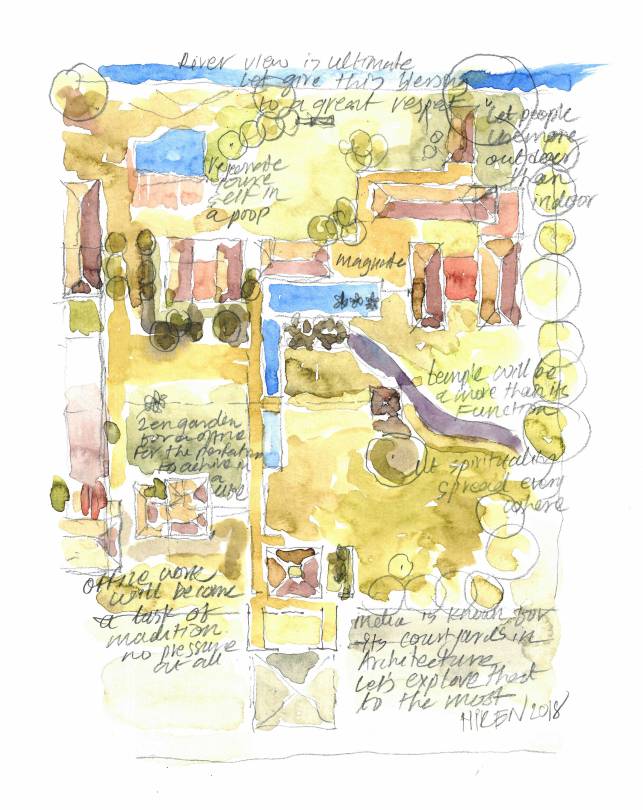 River view is ultimate
Let give this blessing
to a great respect
Let people
live more
outdoor
than
indoor
rejuvenate
your
self in
a poop
maquate
temple will be
a more than its
Function
Let spirituality
spread every
where
Zen garden
for a office
For the
to achive in
a
life
office work
will become
a task of
madition
no pressure
at all
India is known for
its courtyards in
Architecture
Let's explore that
to the most
HIREN 2018